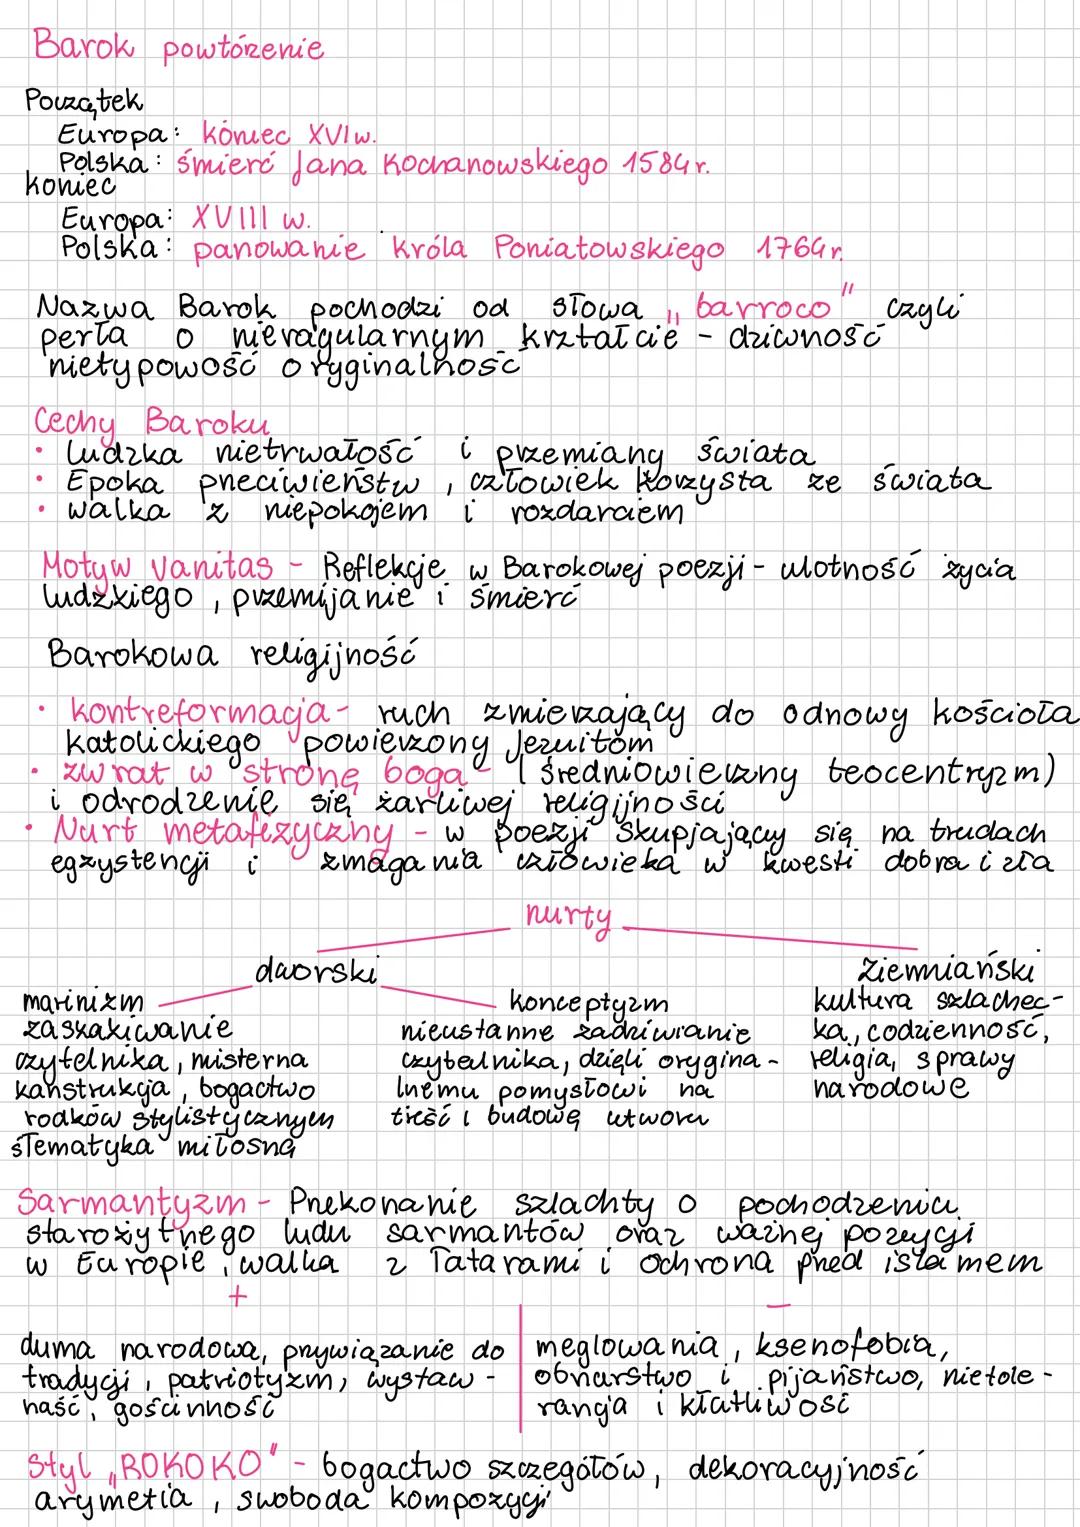 Barok powtórzenie
Początek
Europa: koniec XVI w.
Polska: śmierć Jana Kochanowskiego 1584 r.
koniec
Europa: XVIII w.
Polska: panowanie króla Poniatowskiego 1764r.
Nazwa Barok pochodzi od słowa „barroco" czyli
perła o nieragularnym krztałcie - dziwność
nietypowość oryginalność
Cechy Baroku
• ludzka nietrwałość i przemiany świata
• Epoka przeciwieństw, człowiek korzysta ze świata
• walka z niepokojem i rozdarciem
Motyw Vanitas - Reflekcje w Barokowej poezji - ulotność życia
ludzkiego, przemijanie i śmierć
Barokowa religijność
• kontreformacja - ruch zmierzający do odnowy kościoła
katolickiego powierzony Jezuitom
• zwrat w stronę boga - (średniowieczny teocentryzm)
i odrodzenie się żarliwej religijności
• Nurt metafizyczny - w poezji skupjający się na trudach
egzystencji i zmagania człowieka w kwesti dobra i zła
nurty
dworski
ziemiański
marinizm
zaskakiwanie
czytelnika, misterna
kanstrukcja, bogactwo
rodków stylistycznych
śTematyka miłosna
konceptyzm
nieustanne zadziwianie
czytelnika, dzięli orygina-
lnemu pomysłowi na
treść i budowę utworu
kultura szlachec-
ka, codzienność,
religia, sprawy
narodowe
Sarmantyzm - Przekonanie szlachty o pochodzeniu
starożytnego ludu sarmantów oraz ważnej pozycji
w Europie, walka z Tatarami i ochrona przed islamem
+
duma narodowa, przywiązanie do
tradycji, patriotyzm, wystaw-
ność, gościnność
–
meglowania, ksenofobia,
obżarstwo i pijaństwo, nietole-
rancja i kłótliwość
Styl „ROKOKO" - bogactwo szczegółów, dekoracyjność
arymetia, swoboda kompozycji